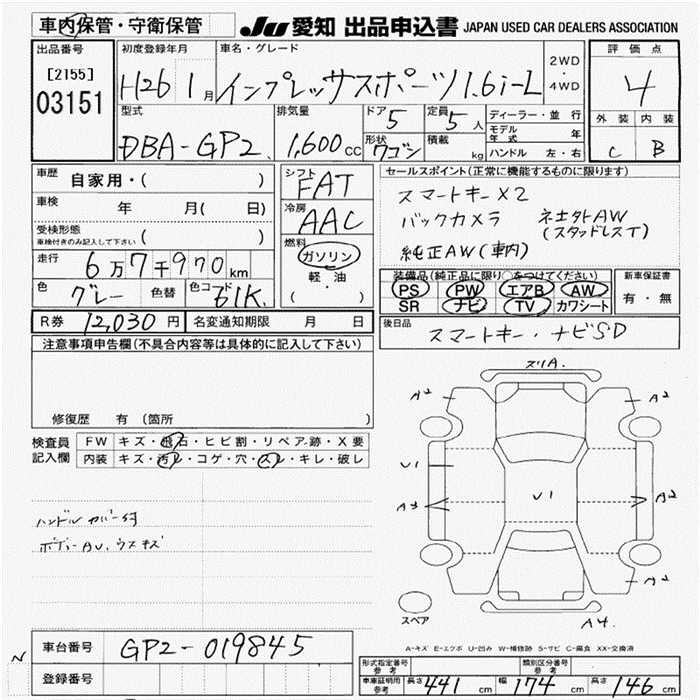 車内保管・守衛保管
JU 愛知 出品申込書 JAPAN USED CAR DEALERS ASSOCIATION
出品番号
[2155]
03151
初度登録年月
H26 1月
車名・グレード
インプレッサスポーツ 1.6i-L
2WD
・
4WD
評価点
4
型式
DBA-GP2
排気量
1,600cc
ドア
5
定員
5人
形状
ワゴン
積載
kg
ディーラー・並行
モデル年式 年
ハンドル 左・右
外装 内装
C B
車歴 自家用・( )
車検 年 月( 日)
受検形態
車検付きのみ記入して下さい ( )
走行 6万7千970km
色 グレー 色替 色コード 61K
シフト
FAT
冷房
AAC
燃料
ガソリン
軽・油
( ・ )
セールスポイント(正常に機能するものに限ります)
スマートキー×2
バックカメラ 社外AW
(スタッドレスT)
純正AW(車内)
装備品(純正品に限り○をつけてください)
PS PW エアB AW
SR ナビ TV カワシート
新車保証書
有・無
R券 12,030円 名変通知期限 月 日
後日品
スマートキー・ナビSD
注意事項申告欄(不具合内容等は具体的に記入して下さい)
修復歴 有 (箇所 )
検査員記入欄
FW キズ・飛石・ヒビ割・リペア跡・X要
内装 キズ・汚レ・コゲ・穴・スレ・キレ・破レ
ハンドルカバー付
ボディーAU、ウスキズ
スリA.
A2 A2
U1
U1
A3 A2
A2
スペア
A4.
A-キズ E-エクボ U-凹み W-補修跡 S-サビ C-腐食 XX-交換済
N
車台番号 GP2-019845
登録番号
形式指定番号
参考
類別区分番号
参考
車庫証明用
参考
長さ 441cm 幅 174cm 高さ 146cm